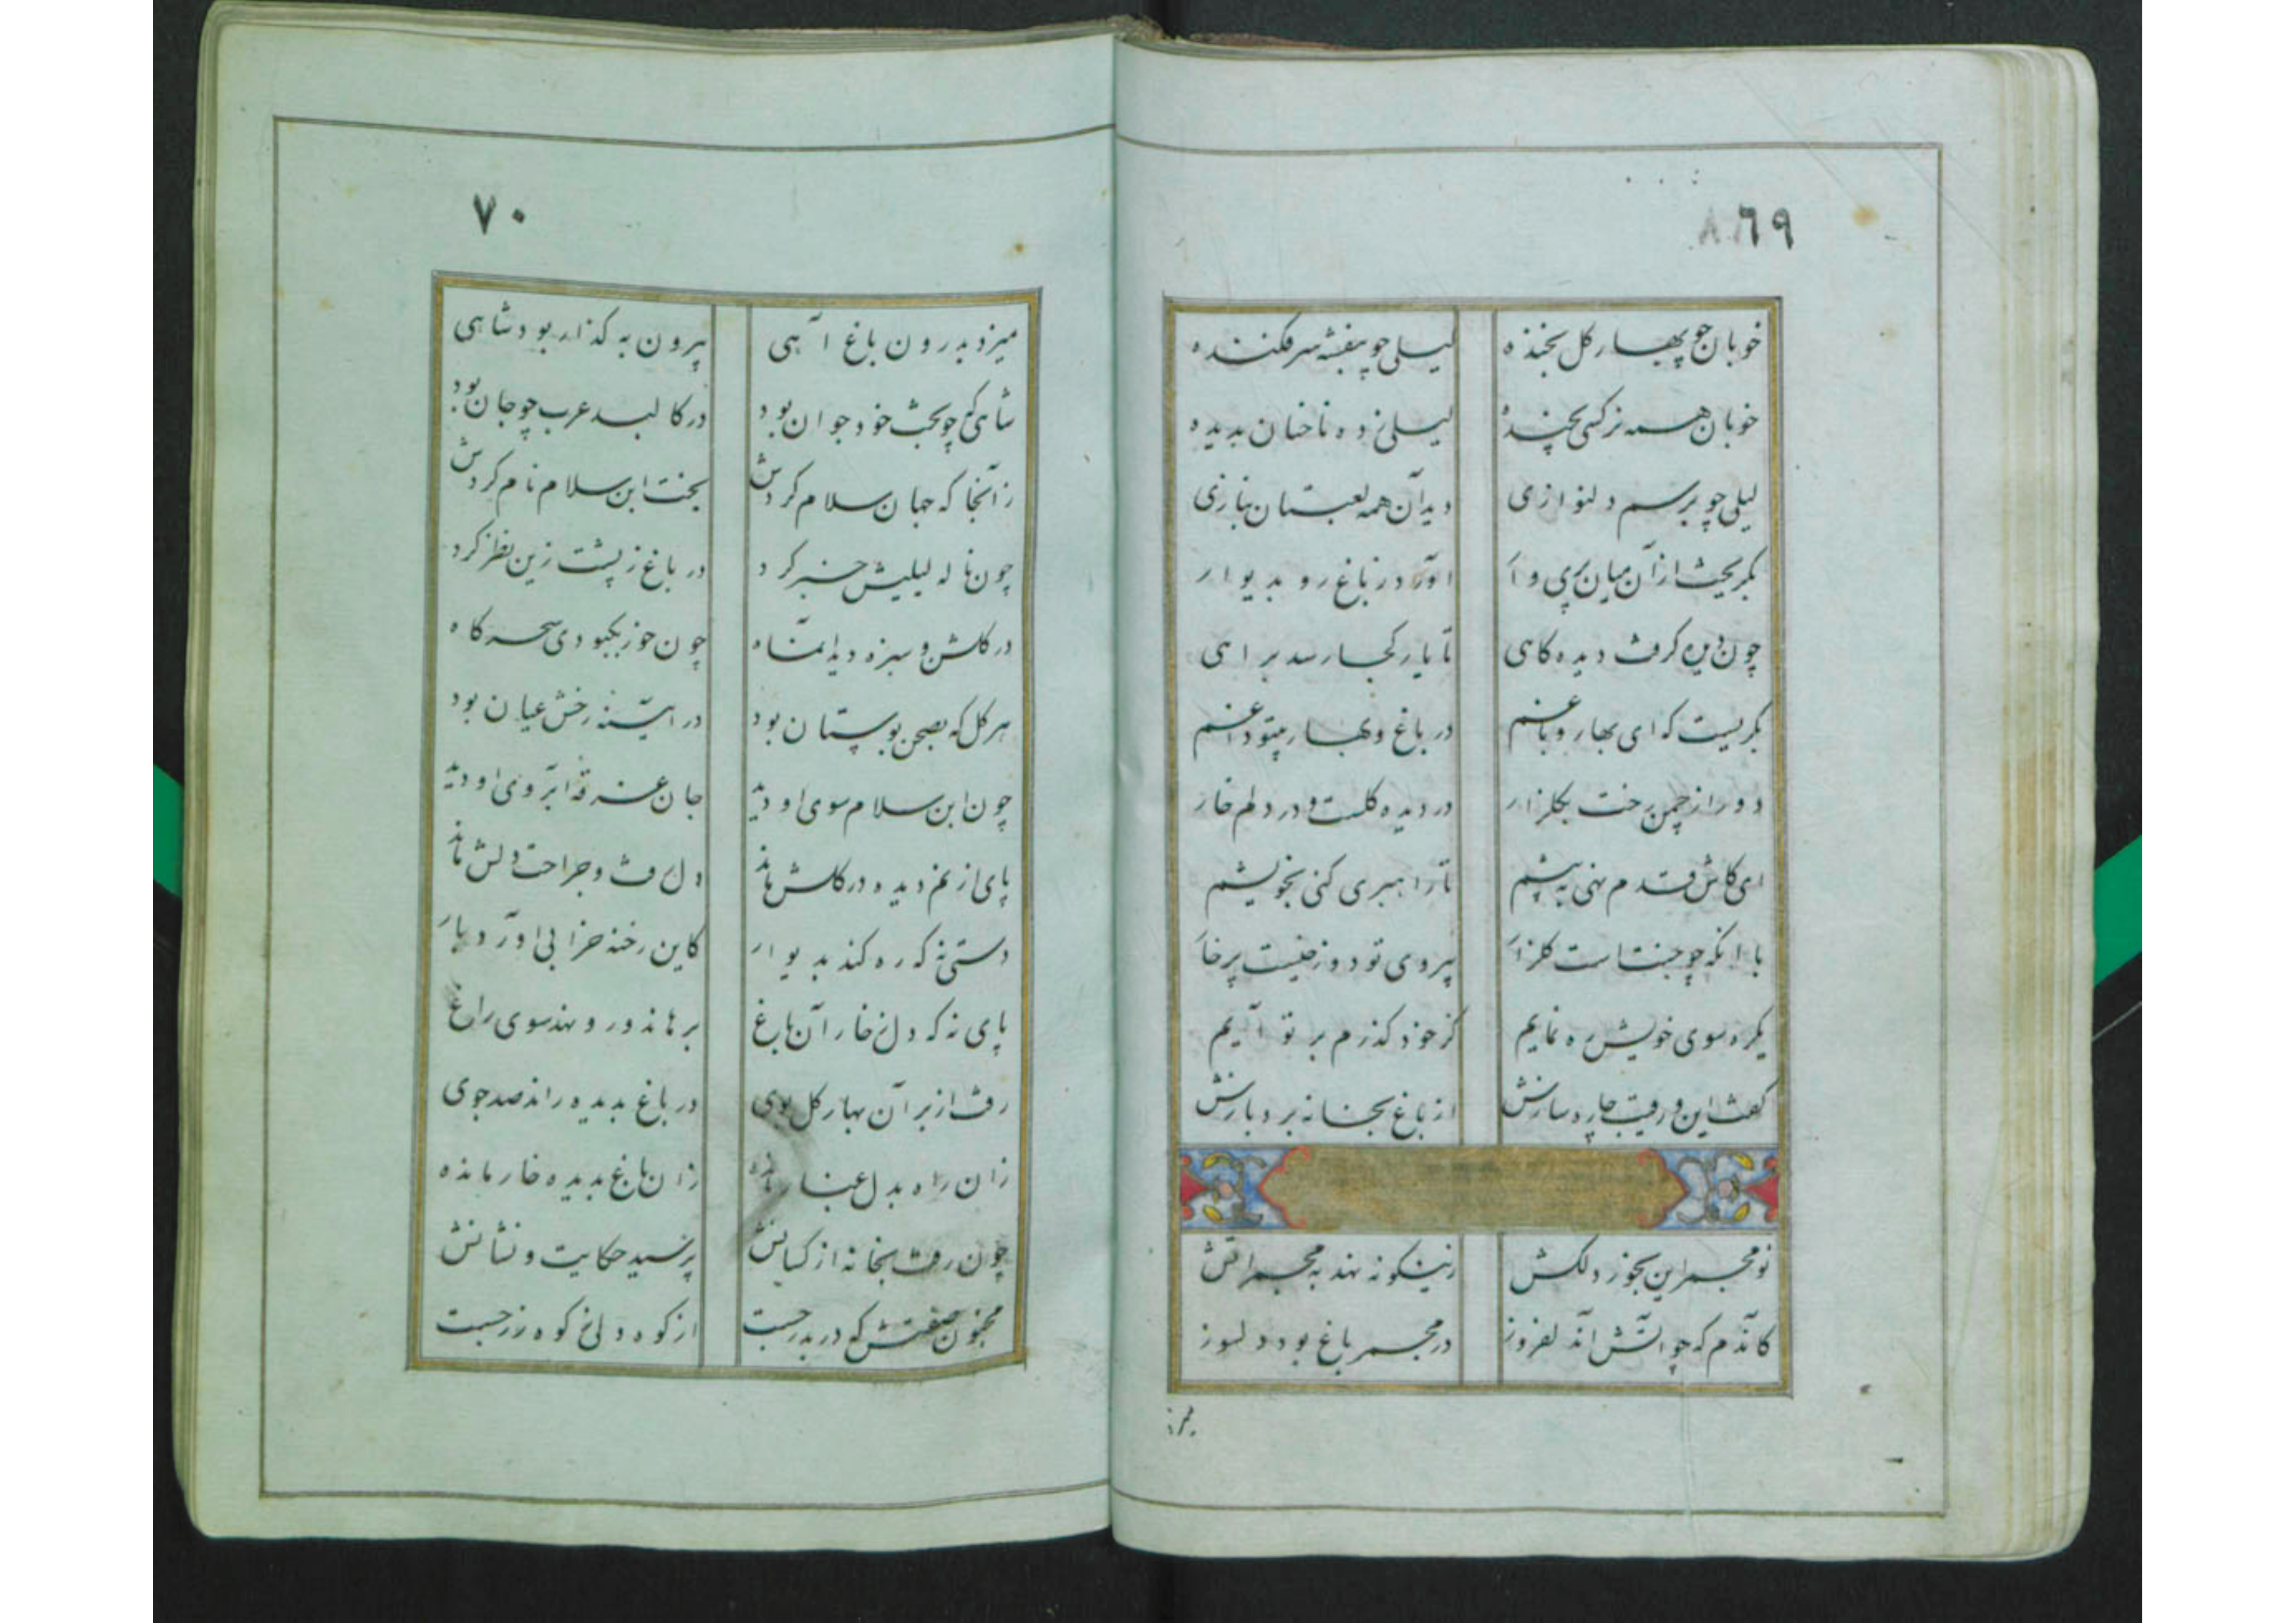 ٦٩
خوبان چو بهار گل بخنده لیلی چو بنفشه سرفکنده
خوبان همه نرگسی بچیده لیلی زده ناخنان بدیده
لیلی چو برسم دلنوازی دید آن همه لعبتان ببازی
بگریخت از آن میان پری وار آورد در باغ رو بدیوار
چون دیده گرفت دیده گاهی تا یار کجا رسد براهی
بگریست که ای بهار و باغم در باغ و بهار بیتو داغم
دور از چمن رخت بگلزار در دیده گلست و در دلم خار
ای کاش قدم نهی به پیشم تا راهبری کنی بخویشم
با آنکه چو جنت است گلزار بیروی تو دوزخیست پرخار
یکره سوی خویش ره نمایم کز خود گذرم بر تو آیم
گفت این و رفیق چاره سازش از باغ بخانه برد بازش
نو مجمر این بخور دلکش زینگونه نهد به مجمر آتش
کاندم که چو آتش آن دلفروز در مجمر باغ بود دلسوز
میزد
٧٠
میزد بدرون باغ آهی بیرون به گذار بود شاهی
شاهی که چو بخت خود جوان بود در کالبد عرب چو جان بود
زآنجا که جهان سلام کردش بخت ابن سلام نام کردش
چون ناله لیلیش خبر کرد در باغ ز پشت زین نظر کرد
در گلشن و سبزه دید آنماه چون خور بکبودی سحرگاه
هر گل که بصحن بوستان بود در آینه رخش عیان بود
چون ابن سلام سوی او دید جان غرقه آبروی او دید
پای از نم دیده در گلش ماند دل رفت و جراحت دلش ماند
دستی نه که ره کند بدیوار کاین رخنه خرابی آورد بار
پای نه که دل ز خار آن باغ برهاند و رو نهد سوی راغ
رفت از بر آن بهار گل بوی در باغ بدیده راند صد جوی
زان راه بدل غبار مانده زان باغ بدیده خار مانده
چون رفت بخانه از کسانش پرسید حکایت و نشانش
مجنون صفتش که در بدر جست از کوه دلی نه کوه زر جست